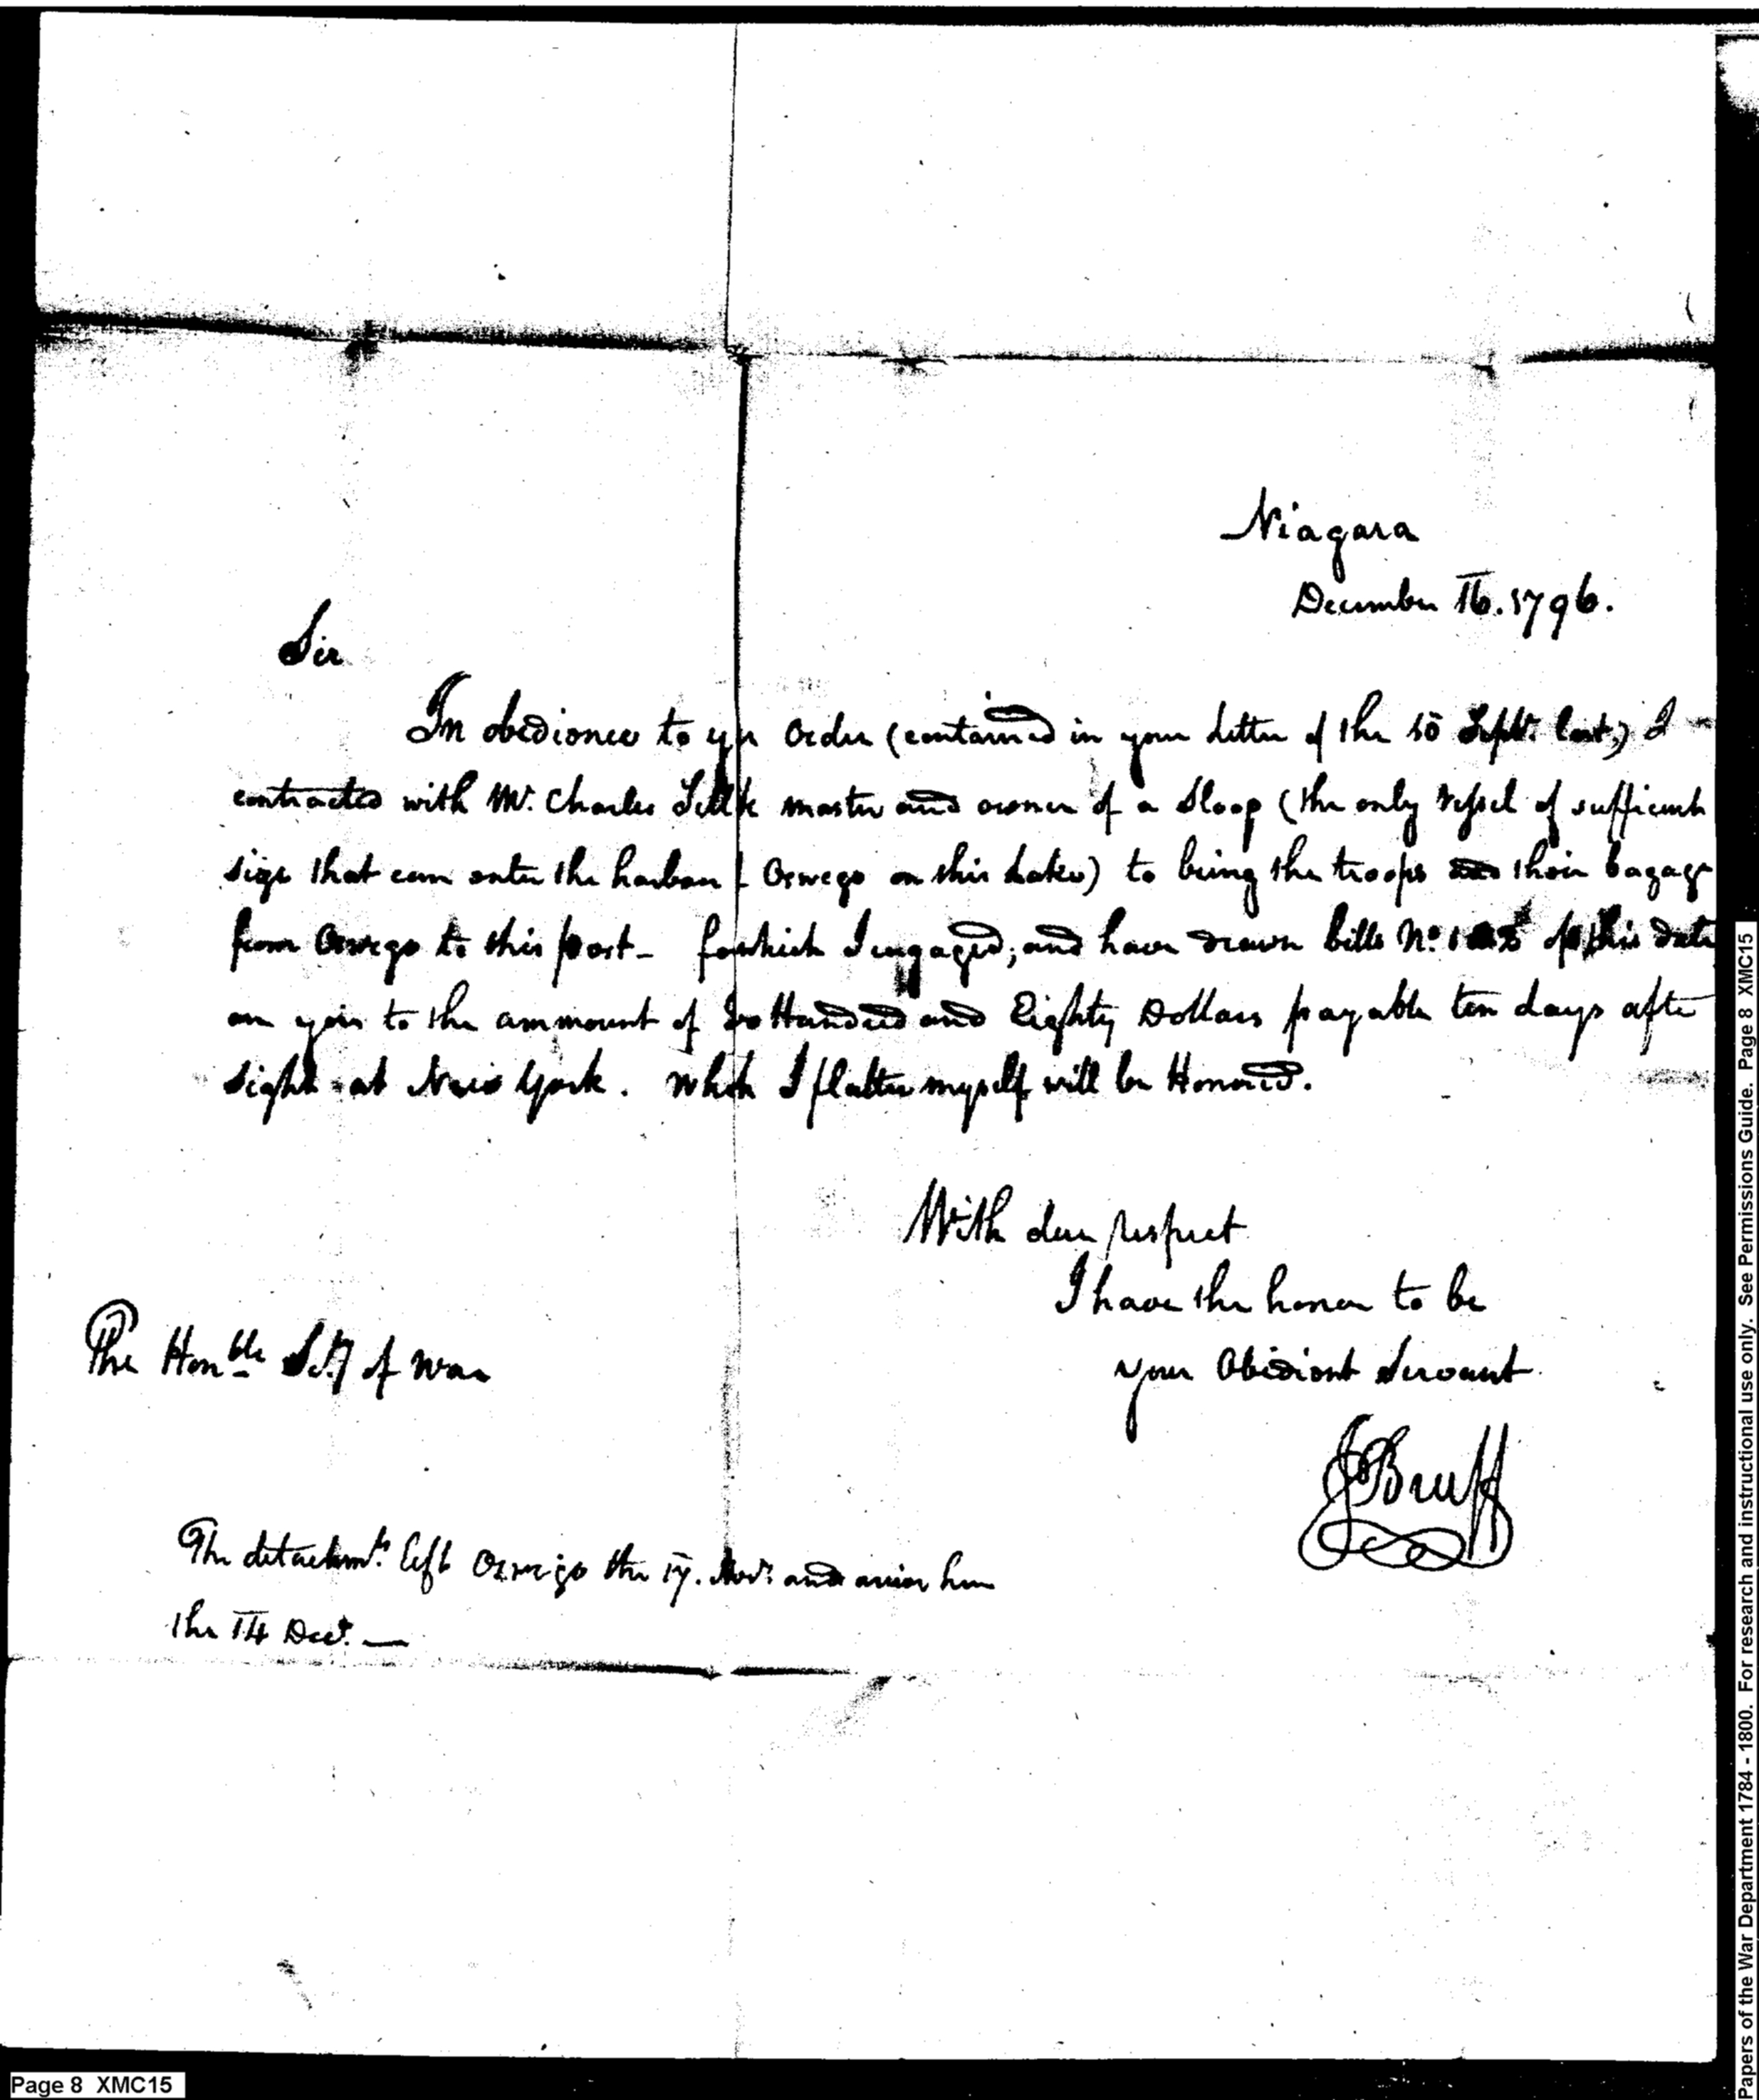 Niagara
December 16. 1796.
Sir
In obedience to your Order (contained in your Letter of the 10 Sept. last,) I
contracted with Mr. Charles master and owner of a Sloop (the only Vessel of sufficient
size that can enter the harbour Oswego on this Lake) to bring the troops and their bagage
from Oswego to this post - forwhich I engaged, and have drawn bills No. 1 of this date
on you to the ammount of Hundred and Eighty Dollars payable ten days after
sight at New York. Which I flatter myself will be Honored.
With due respect
I have the honor to be
your Obedient Servant
JBruff
The Honble Sy of War
The detachmt. left Oswego the 17. Novr and arive here
the 14 Dect. —
Page 8 XMC15
Papers of the War Department 1784 - 1800. For research and instructional use only. See Permissions Guide. Page 8 XMC15